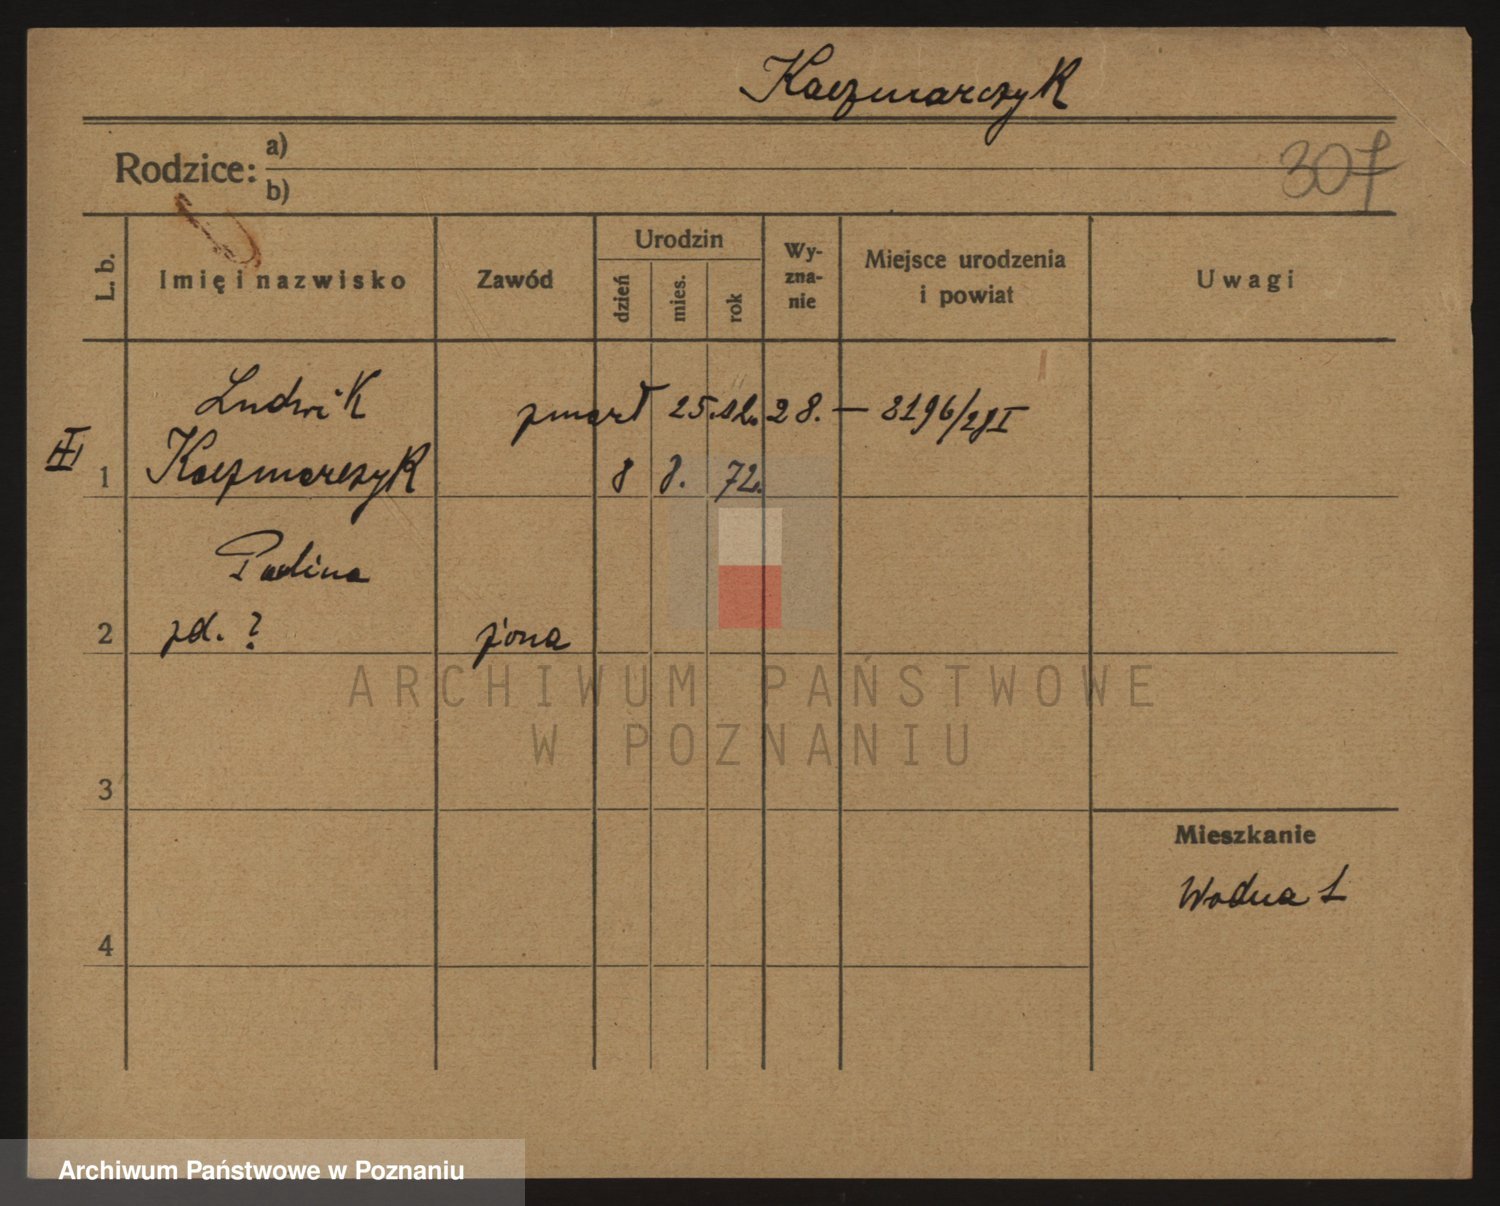 Kaczmarczyk
Rodzice: a)
b)
307
L. b.
Imię i nazwisko
Zawód
Urodzin
dzień
mies.
rok
Wy-
zna-
nie
Miejsce urodzenia
i powiat
Uwagi
Ludwik
zmarł 25.12.28. – 8196/28 I
III
1
Kaczmarczyk
8 8. 72.
Paulina
2
zd. ?
żona
ARCHIWUM PAŃSTWOWE
W POZNANIU
3
Mieszkanie
Wodna 1
4
Archiwum Państwowe w Poznaniu